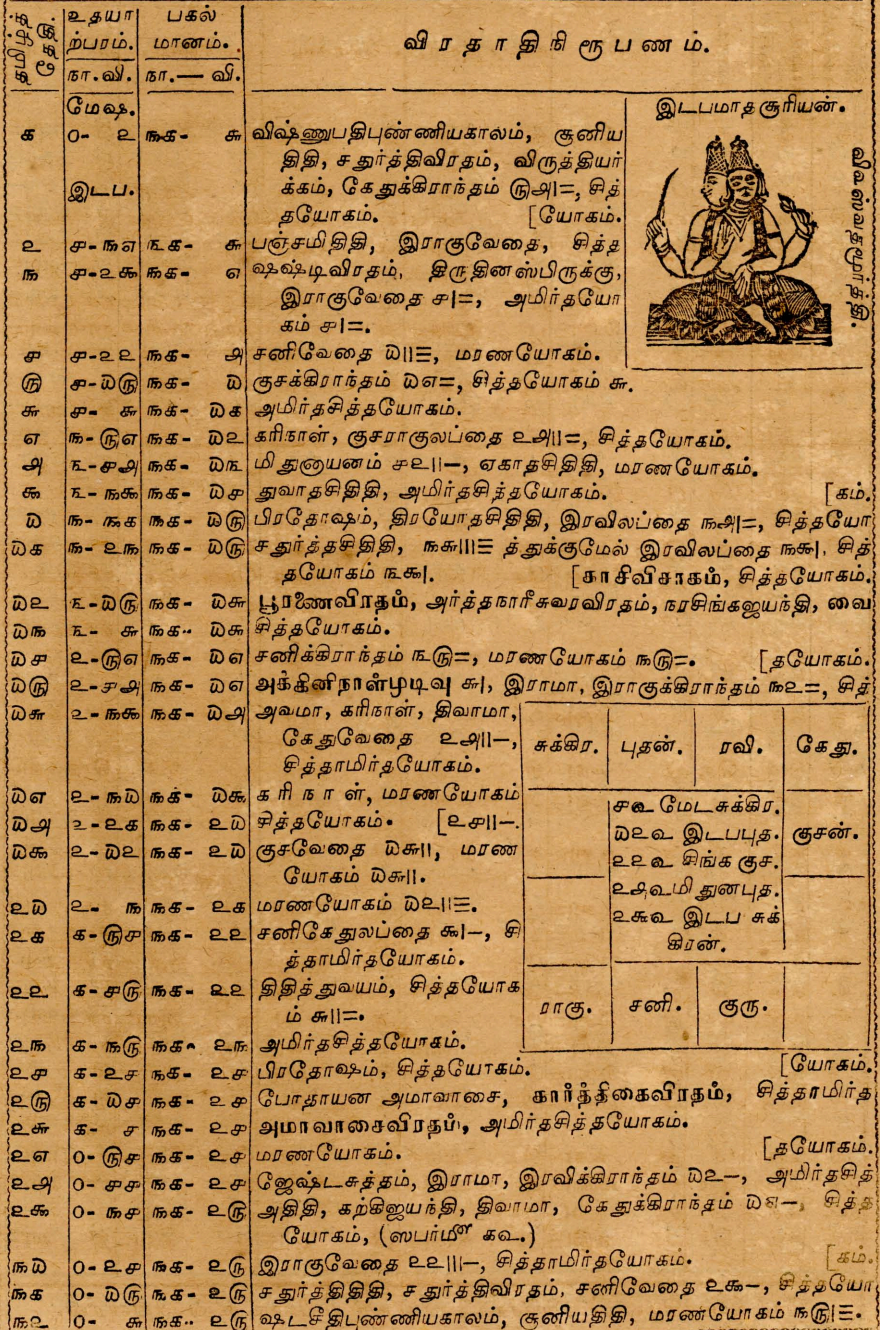 தமிழ்த் தேதி. உதயா பகல்
ற்பரம். மானம். விரதாதிநிரூபணம்.
நா.வி. நா.— வி.
மேஷ. இடபமாதசூரியன்.
௧ ௦- ௨ ௩௧- ௬ விஷ்ணுபதிபுண்ணியகாலம், சூனிய
திதி, சதுர்த்திவிரதம், விருத்தியர்
இடப. க்கம், கேதுக்கிராந்தம் ௫௮|=, சித்
தயோகம். [யோகம்.
௨ ௪-௩௭ ௩௧- ௬ பஞ்சமிதிதி, இராகுவேதை, சித்த
௩ ௪-௨௯ ௩௧- ௭ ஷஷ்டிவிரதம், திருதினஸ்பிருக்கு,
இராகுவேதை ௪|=, அமிர்தயோ
கம் ௪|=.
விவஸ்வதமூர்த்தி.
௪ ௪-௨௨ ௩௧- ௮ சனிவேதை ௰||☰, மரணயோகம்.
௫ ௪-௰௫ ௩௧- ௰ குசக்கிராந்தம் ௰௭=, சித்தயோகம் ௬.
௬ ௪- ௬ ௩௧- ௰௧ அமிர்தசித்தயோகம்.
௭ ௩-௫௭ ௩௧- ௰௨ கரிநாள், குசராகுலப்தை ௨௮||=, சித்தயோகம்.
௮ ௩-௪௮ ௩௧- ௰௩ மிதுனாயனம் ௪௨||–, ஏகாதசிதிதி, மரணயோகம்.
௯ ௩-௩௯ ௩௧- ௰௪ துவாதசிதிதி, அமிர்தசித்தயோகம். [கம்.
௰ ௩-௩௧ ௩௧- ௰௫ பிரதோஷம், திரயோதசிதிதி, இரவிலப்தை ௩௮|=, சித்தயோ
௰௧ ௩-௨௩ ௩௧- ௰௫ சதுர்த்தசிதிதி, ௩௬|||☰ த்துக்குமேல் இரவிலப்தை ௩௯|, சித்
தயோகம் ௩௯|. [காசிவிசாகம், சித்தயோகம்.
௰௨ ௩-௰௫ ௩௧- ௰௬ பூரணைவிரதம், அர்த்தநாரீசுவரவிரதம், நரசிங்கஜயந்தி, வை
௰௩ ௩- ௬ ௩௧- ௰௬ சித்தயோகம்.
௰௪ ௨-௫௭ ௩௧- ௰௭ சனிக்கிராந்தம் ௩௫=, மரணயோகம் ௩௫=. [தயோகம்.
௰௫ ௨-௪௮ ௩௧- ௰௭ அக்கினிநாள்முடிவு ௬|, இராமா, இராகுக்கிராந்தம் ௩௨=, சித்
௰௬ ௨-௩௯ ௩௧- ௰௮ அவமா, கரிநாள், திவாமா,
கேதுவேதை ௨௮||–,
சித்தாமிர்தயோகம்.
சுக்கிர. புதன். ரவி. கேது.
௰௭ ௨-௩௰ ௩௧- ௰௯ கரிநாள், மரணயோகம்
௰௮ ௨-௨௧ ௩௧- ௨௰ சித்தயோகம். [௨௪||–.
௰௯ ௨-௰௨ ௩௧- ௨௰ குசவேதை ௰௬||, மரண
யோகம் ௰௬||.
௪௳ மேடசுக்கிர.
௰௨௳ இடபபுத. குசன்.
௨௨௳ சிங்ககுச.
௨௮௳மிதுனபுத.
௨௯௳ இடப சுக்
கிரன்.
௨௰ ௨- ௩ ௩௧- ௨௧ மரணயோகம் ௰௨||☰.
௨௧ ௧-௫௪ ௩௧- ௨௨ சனிகேதுலப்தை ௯|–, சி
த்தாமிர்தயோகம்.
௨௨ ௧-௪௫ ௩௧- ௨௨ திதித்துவயம், சித்தயோக
ம் ௬||=.
ராகு. சனி. குரு.
௨௩ ௧-௩௫ ௩௧- ௨௩ அமிர்தசித்தயோகம்.
௨௪ ௧-௨௪ ௩௧- ௨௪ பிரதோஷம், சித்தயோகம். [யோகம்.
௨௫ ௧-௰௪ ௩௧- ௨௪ போதாயன அமாவாசை, கார்த்திகைவிரதம், சித்தாமிர்த
௨௬ ௧- ௪ ௩௧- ௨௪ அமாவாசைவிரதம், அமிர்தசித்தயோகம்.
௨௭ ௦-௫௪ ௩௧- ௨௪ மரணயோகம். [தயோகம்.
௨௮ ௦-௪௪ ௩௧- ௨௪ ஜேஷ்டசுத்தம், இராமா, இரவிக்கிராந்தம் ௰௨–, அமிர்தசித்
௨௯ ௦-௩௪ ௩௧- ௨௫ அதிதி, கற்கிஜயந்தி, திவாமா, கேதுக்கிராந்தம் ௰௭–, சித்த
யோகம், (ஸபர்மீ ௧௳.)
௩௰ ௦-௨௪ ௩௧- ௨௫ இராகுவேதை ௨௨|||–, சித்தாமிர்தயோகம். [கம்.
௩௧ ௦-௰௫ ௩௧- ௨௫ சதுர்த்திதிதி, சதுர்த்திவிரதம், சனிவேதை ௨௯–, சித்தயோ
௩௨ ௦- ௬ ௩௧- ௨௫ ஷடசீதிபுண்ணியகாலம், சூனியதிதி, மரணயோகம் ௩௫|☰.